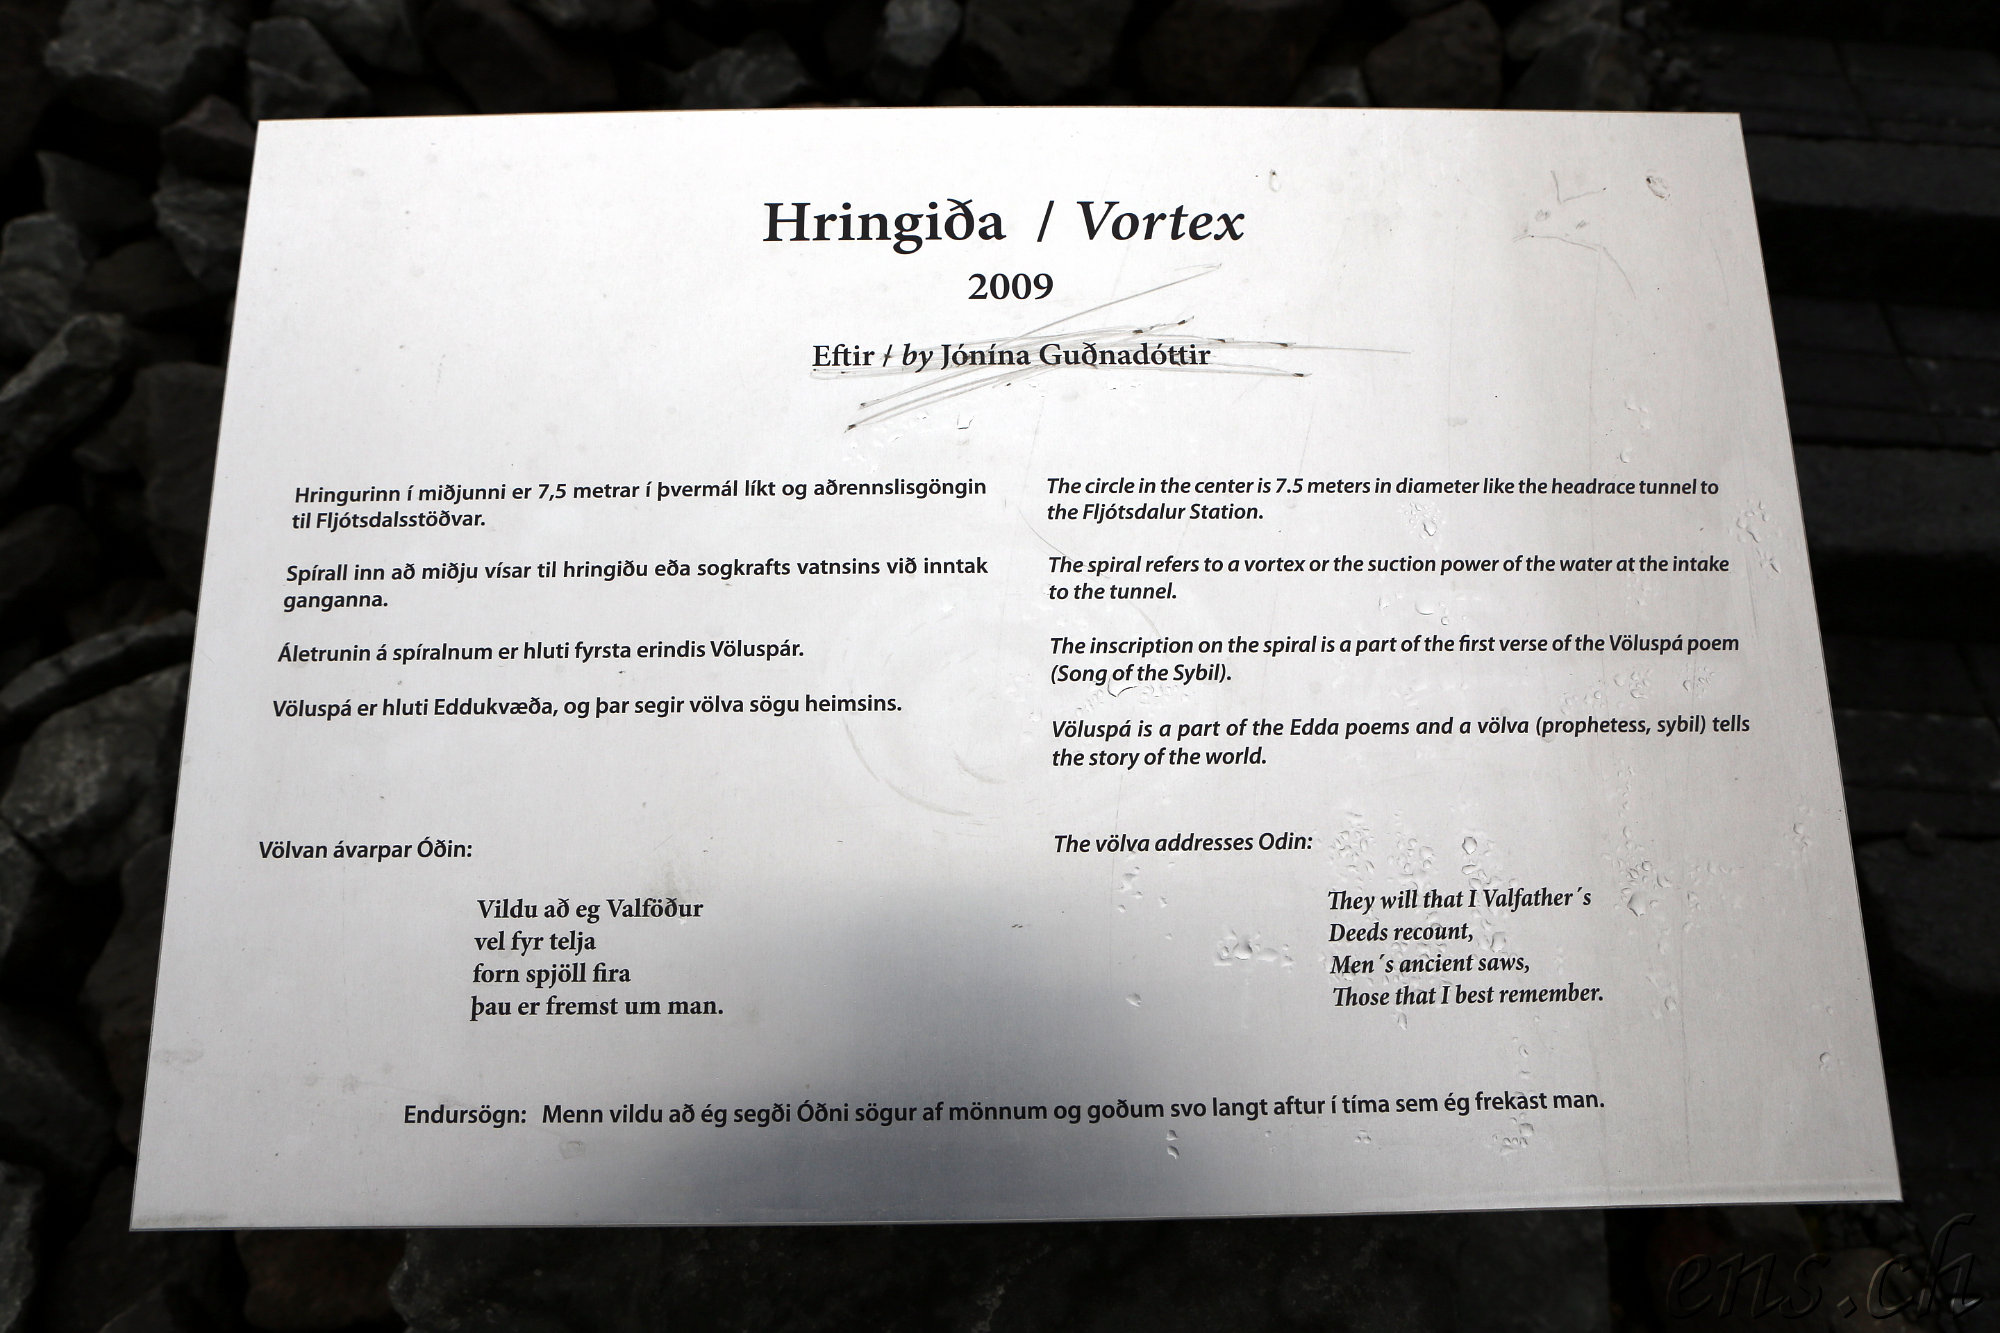 Hringiða / Vortex
2009
Eftir / by Jónína Guðnadóttir
Hringurinn í miðjunni er 7,5 metrar í þvermál líkt og aðrennslisgöngin
til Fljótsdalsstöðvar.
Spírall inn að miðju vísar til hringiðu eða sogkrafts vatnsins við inntak
ganganna.
Áletrunin á spíralnum er hluti fyrsta erindis Völuspár.
Völuspá er hluti Eddukvæða, og þar segir völva sögu heimsins.
Völvan ávarpar Óðin:
Vildu að eg Valföður
vel fyr telja
forn spjöll fira
þau er fremst um man.
The circle in the center is 7.5 meters in diameter like the headrace tunnel to
the Fljótsdalur Station.
The spiral refers to a vortex or the suction power of the water at the intake
to the tunnel.
The inscription on the spiral is a part of the first verse of the Völuspá poem
(Song of the Sybil).
Völuspá is a part of the Edda poems and a völva (prophetess, sybil) tells
the story of the world.
The völva addresses Odin:
They will that I Valfather´s
Deeds recount,
Men´s ancient saws,
Those that I best remember.
Endursögn: Menn vildu að ég segði Óðni sögur af mönnum og goðum svo langt aftur í tíma sem ég frekast man.
ens.ch